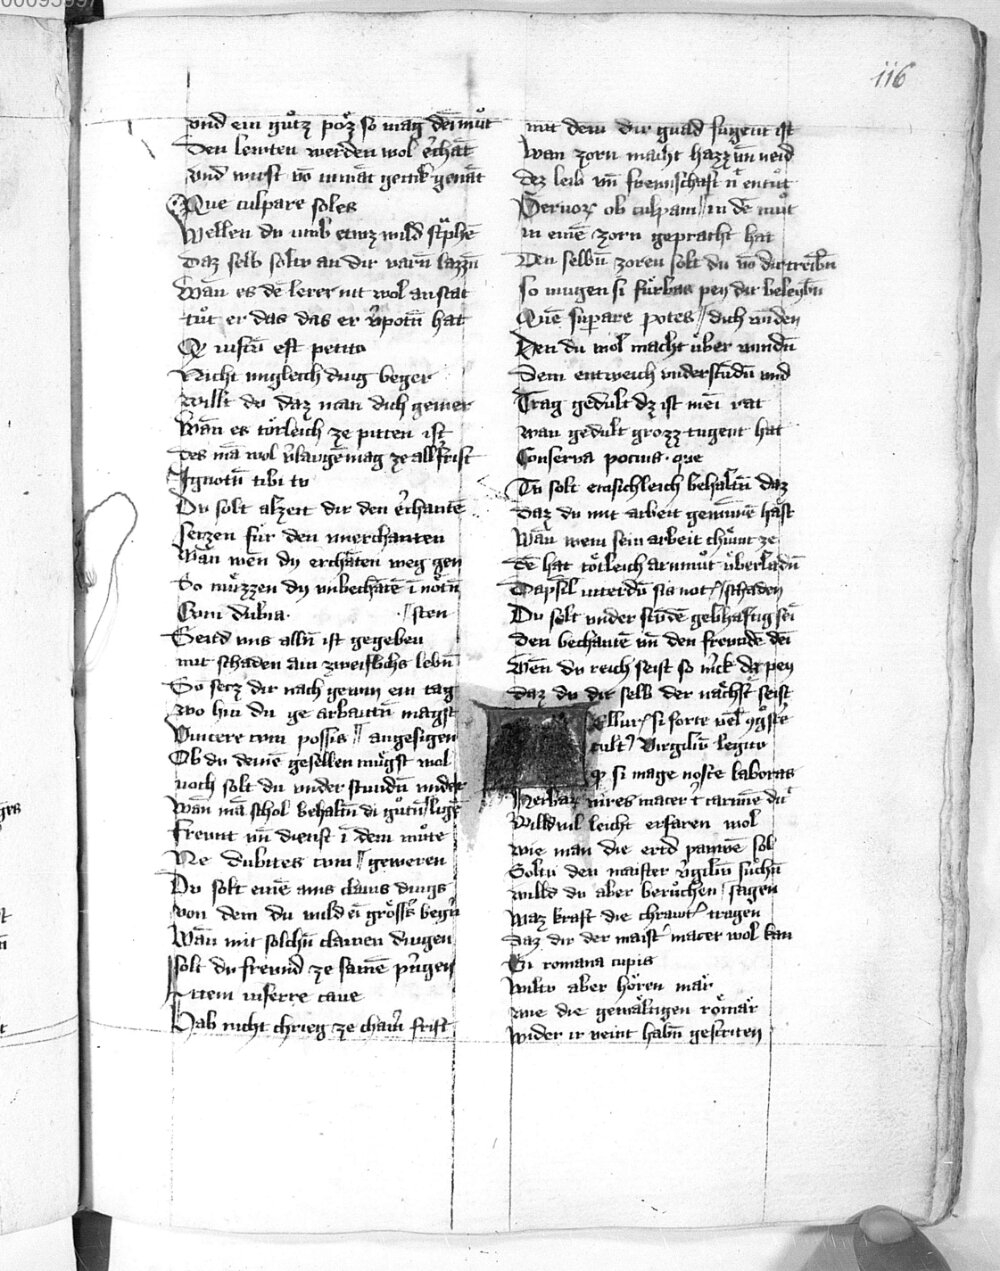 116
vnd ein gůtz pöz so mag dein můt
Den lewten werden wol erchāt
vnd wirst vō
Que culpare soles
Wellen du vmb etwz wild strphē
Daz selb soltu an dir varn lazzn
Wān es dē lerer nit wol anstat
tůt er das das er v̄potn̄ hat
Q iustū est petito
Nicht vngleich ding beger
willt du daz man dich gewer
Wān es törleich ze pitten ist
des mā wol v̄laugēmag ze all frist
Ignotū tibi tu
Du solt alzeit dir den erchantē
setzen für den vnerchanten
Wān wen dy erchāten weg gen
So müzzen dy vnbechātē ī nötn̄
Cum dubia // sten
Seitd vns alln̄ ist gegeben
mit schaden ain zweiflichs lebn̄
So secz dir nach gewin ein tag
wo hin du ge arbaittn̄ magst
Vincere cum possis // angesigen
Ob du deinē gesellen mügst wol
noch solt du vnder stundn̄ vnder
Wān mā schol behaltn̄ di gůtn̄ / lugē
freunt vn̄ dienst ī dem můte
Ne dubites cum // geweren
Du solt einē ains clains dings
von dem du wild ei grössʼs begern
Wān mit solchn̄ clainen dingen
solt du freund ze samē pringen
Litem inferre caue
Hab nicht chrieg ze chainr frist
mit dem dir gnad fügent ist
Wan zorn macht hazz vn̄ neid
dez leib vn̄ frewnschaft
Seruorʼ ob culpam // in dē můt
in einē zorn gepracht hat
Den selbn̄ zoren solt du vō dir treibn̄
so mugen si fürbas pey dir beleybn̄
Quē superare potes / dich vinden
Den du wol macht über windn̄
Dem entweich vnderstundn̄ vnd
Trag gedult dz ist mein rat
wan gedult grozz tugent hat
Conserva pocius que
Tu solt emsichleich behaltn̄ daz
Daz du mit arbeit gewinnē hast
Wān wem sein arbeit chümt ze
dē hat tötleich armůt überladn̄
Dapsil interdū sis not' // schaden
Du solt vnder stūdē gebhaftig sei
den bechantē vn̄ den freunde dei
Wēn du reich seist so mʼck da pey
daz du dir selb der nächst seist
ellurʼ si forte
cultʼ Virgiliū legito
qʼ si mage nosʼce laboras
Herbarʼ vires macer t carmīe
Willd uil leicht erfaren wol
wie man die erd pawē sol
Soltu den maister v̄giliū sůchn̄
willd du aber berůchen / sagen
Waz kraft die chrawtʼ tragen
Daz dir der maistʼ macer wol kan
Si romana cupis
Wiltu aber hören mär
wie die gewältigen römär
wider ir veint habn̄ gestriten